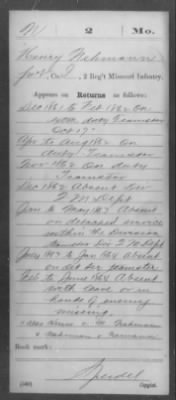 N 2 Mo.
Henry Nehmann
Co. , 2 Reg't Missouri Infantry.
Appears on Returns as follows:
Dec 1861 to Feb 1862 On
extra duty Teamster
Oct 17
Apr to Aug 1862 On
duty Teamster
Nov 1862 On duty
Teamster
Dec 1862 Absent
Jan to May 1863 Absent
on detached service
within the Division
Teamster Div
June 1863 to Jan 1864 absent
on det ser teamster
Feb to June 1864 Absent
with leave or in
hands of enemy
missing
Book mark:
(546) Copyist.